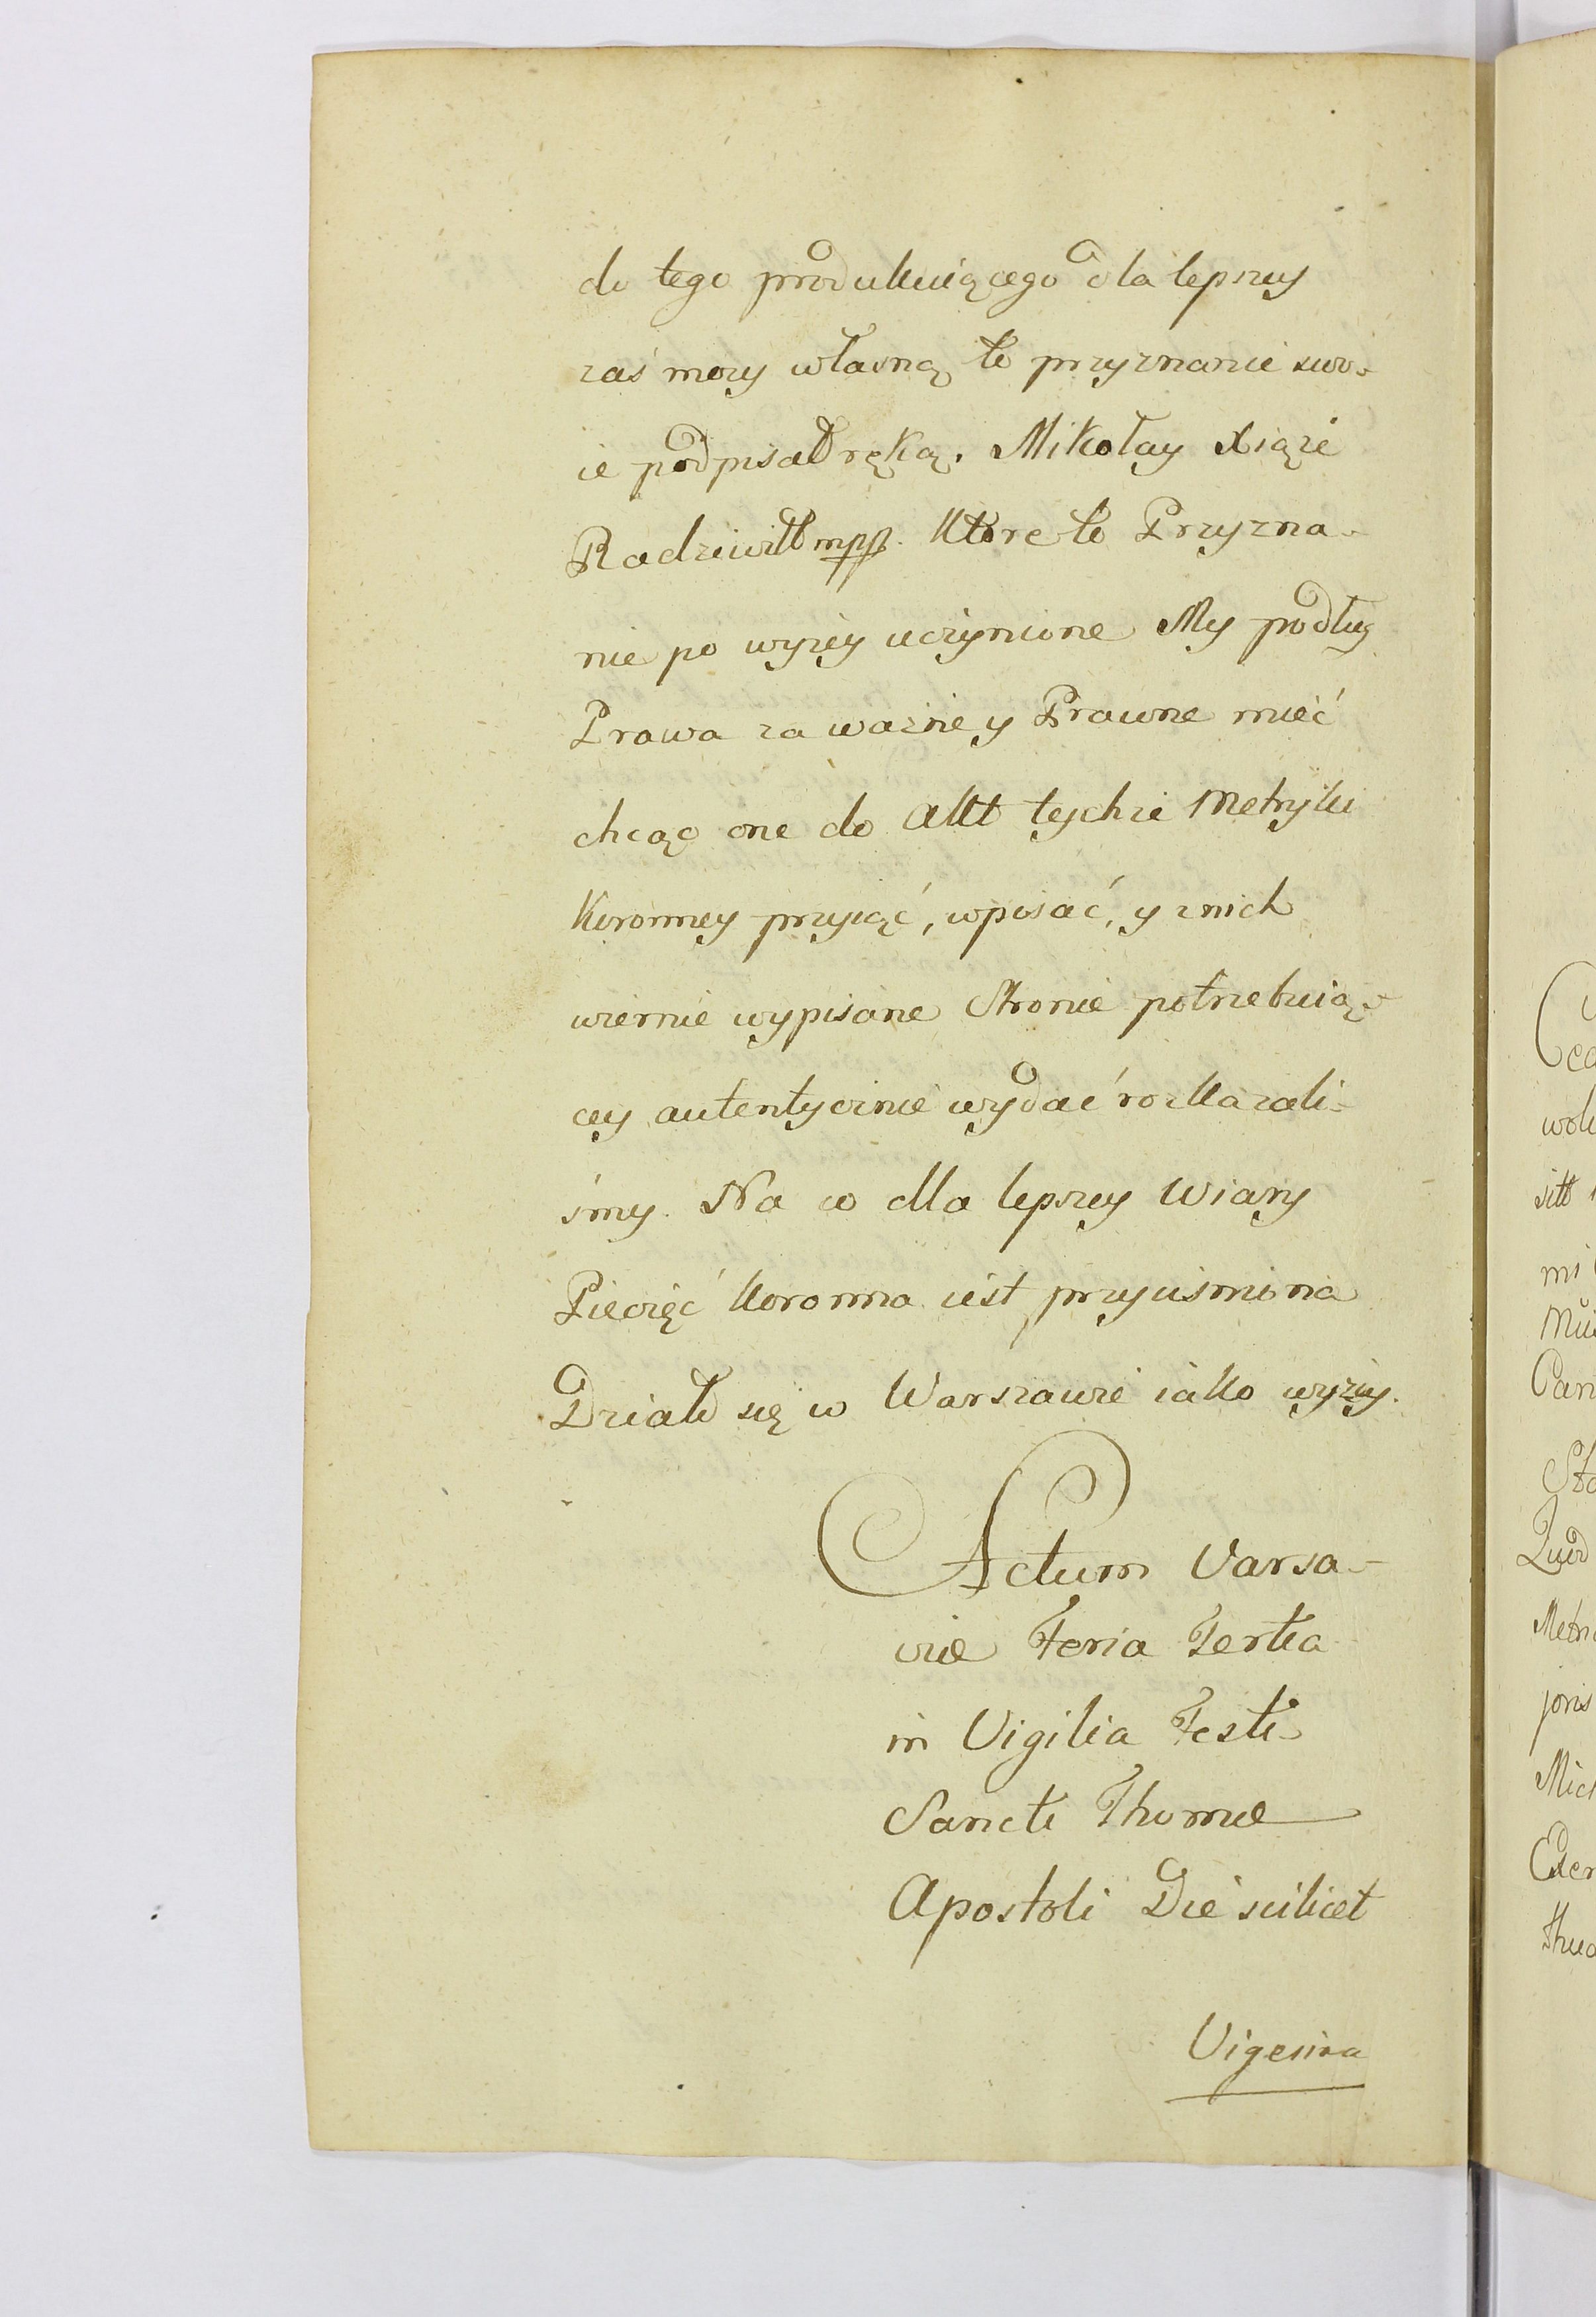 do tego produkuiącego dla lepszey
zaś mocy własną to przyznanie swo-
ie podpisał ręką. Mikołay Xiąże
Radziwiłł mpp. Które to Przyzna-
nie po wyżey uczynione My podług
Prawa za ważne y Prawne mieć
chcąc one do Akt tychże Metryki
Koronney przyiąć, wpisać, y z nich
wiernie wypisane Stronie potrzebuią-
cey autentycznie wydać rozkazali-
śmy. Na co dla lepszey Wiary
Pieczęć Koronna iest przyciśniona
Działo się w Warszawie iako wyżey.
Actum Varsa-
viæ Feria Tertia
in Vigilia Festi
Sancti Thomæ
Apostoli Die scilicet
Vigesima
wol
mi
Pan
Metr
joris
Mich